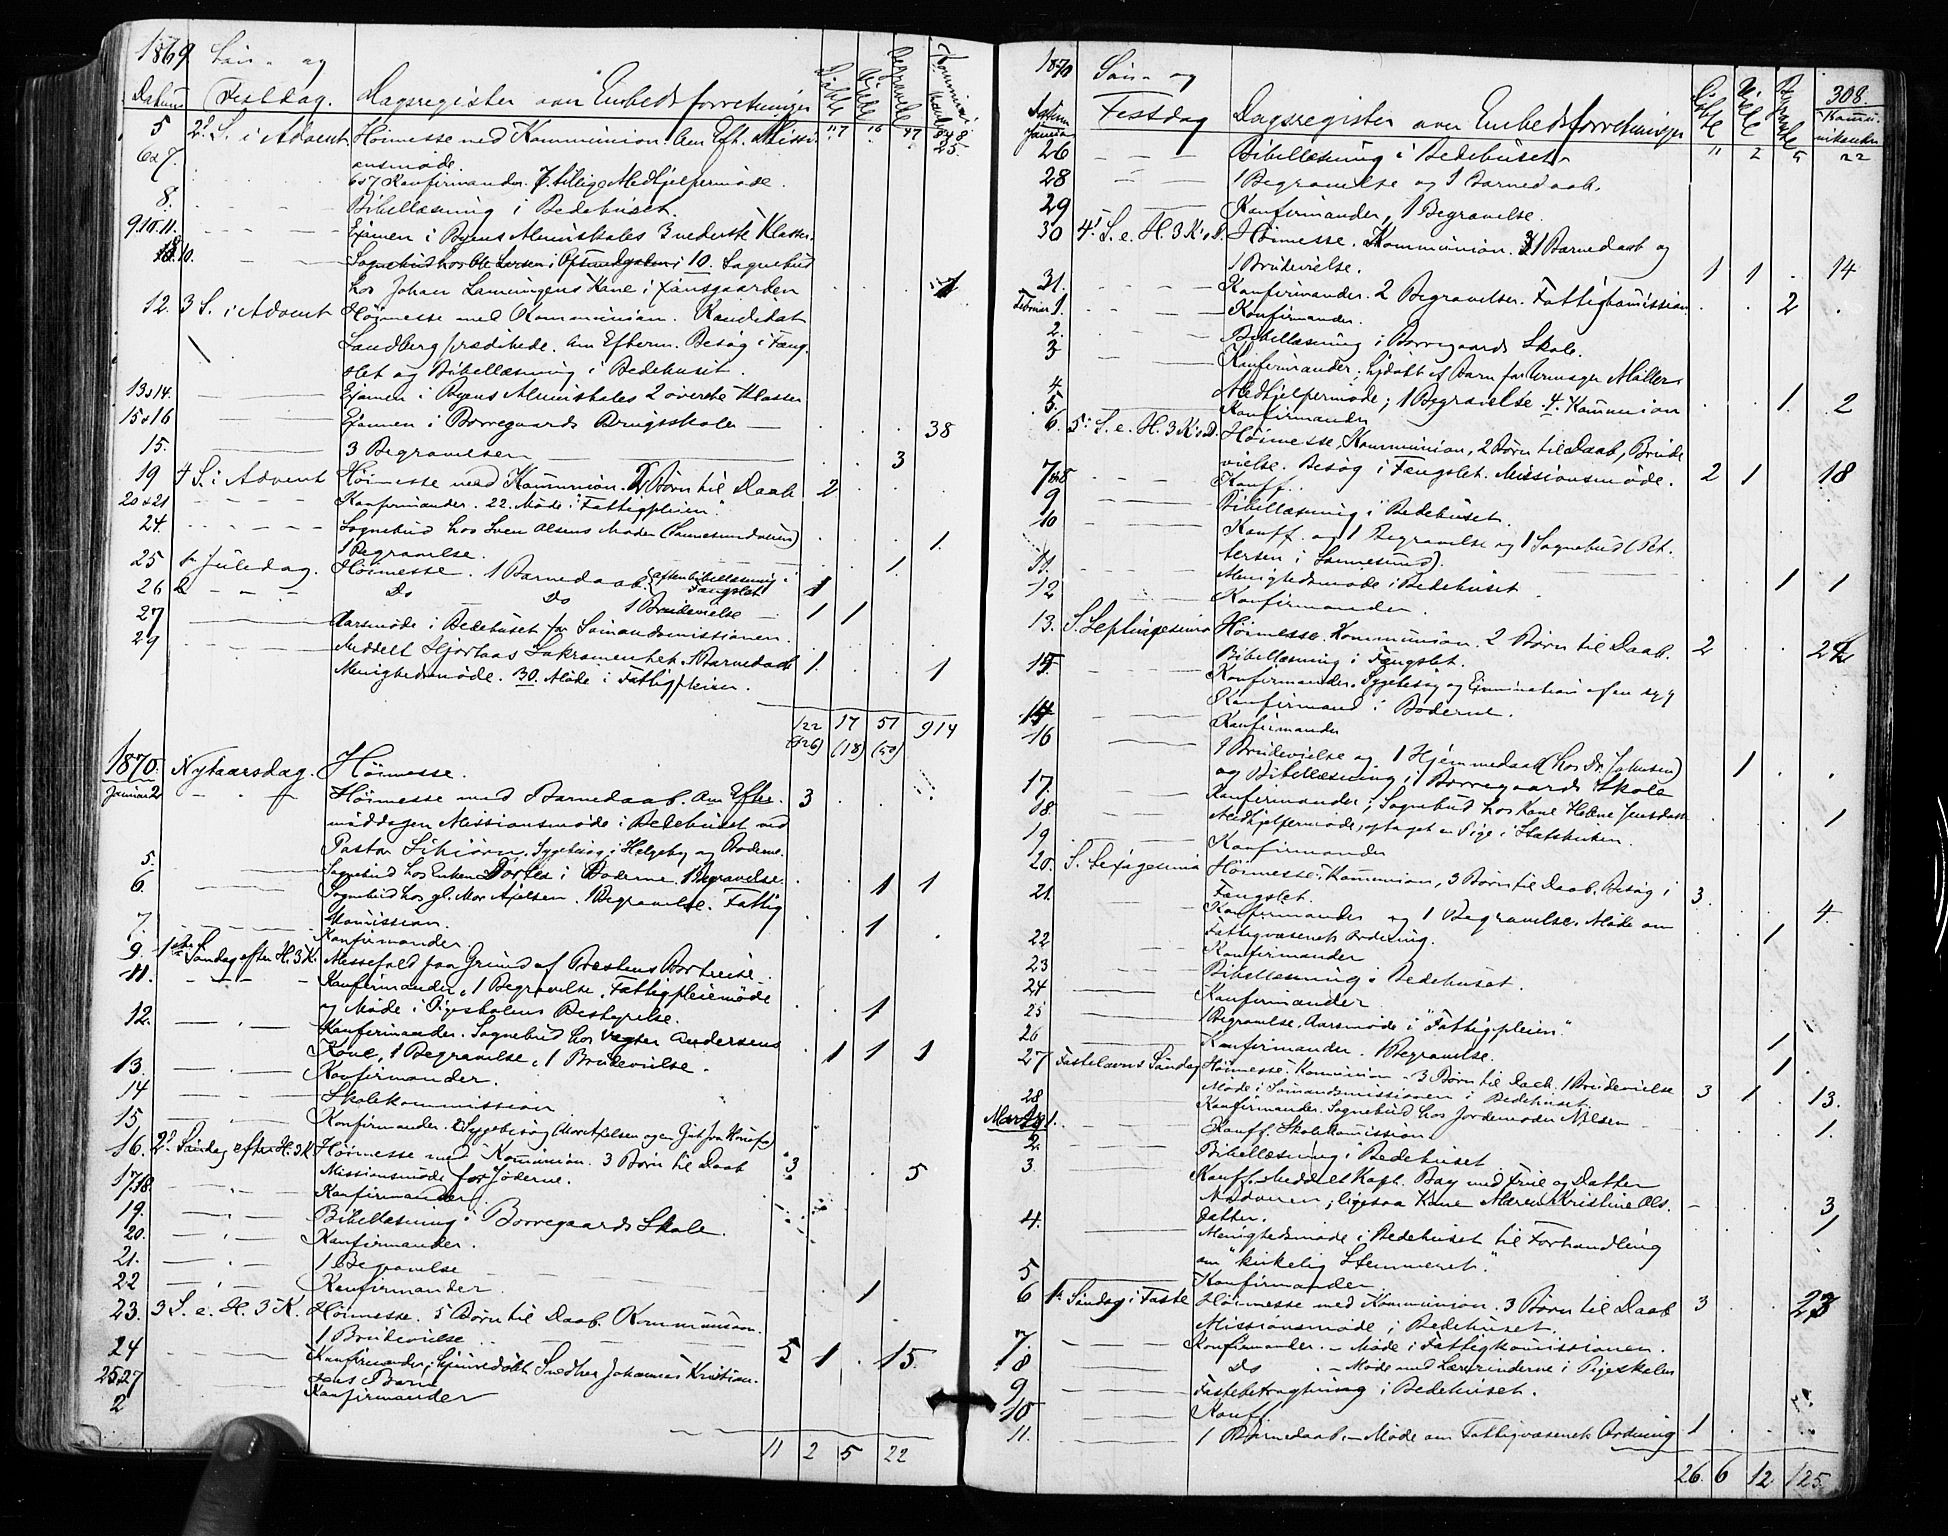 1869 Søn- og
Datum Festdag. Dagsregister over Embedsforretninger Døbte Viede Begravede Kommunikanter
5 2d S. i Advent Høimesse med Kommunion. Am Eft. Missi-
onsmøde.
6 o 7. 6 o 7 Konfirmander. 7. tillige Medhjelpermøde.
8. Bibellæsning i Bedehuset.
9.10.11. Examen i Byens Almuskoles 3 nederste Klasser.
10. Sagnebud hos Ole Larsen i 10. Sagnebud
hos Johan Kone i 1
12. 3 S. i Advent Høimesse med Kommunion. Kandidat
Sandberg prædikede. Am Efterm. Besøg i Fæng-
slet og Bibellæsning i Bedehuset.
13 o 14. Examen i Byens Almuskoles 2 øverste Klasser
15 o 16 Examen i Borregaards Brugsskole 38
15. 3 Begravelser 3
19 4 S. i Advent Høimesse med Kommunion. 2 Børn til Daab 2
20 o 21 Konfirmander. 22. Møde i "Fattigpleien"
24. Sognebud hos Sven Olsens Moder (Sannesundveien) 1.
1 Begravelse. 1.
25 1ste Juledag. Høimesse. 1 Barnedaab. Aftenbibellæsning i Fængslet 1
26 2 Do Do 1 Brudevielse 1 1
27 Aarsmøde i Bedehuset for Sømandsmissionen.
29 Meddelt Hjortaas Sakramentet. 1 Barnedaab 1. 1
Menighedsmøde. 30. Møde i Fattigpleien.
122 17 51 914
(126) (18) (50)
1870. Nytaarsdag. Høimesse.
Januar 2 Høimesse med Barnedaab. Am Efter- 3
middagen Missionsmøde i Bedehuset ved
Pastor Sygebesøg i Helgeby og Boderne.
5. Sognebud hos Enken Dorles i Boderne. 1 Begravelse. 1 1
6. Sognebud hos gl. Mor Axelsen. 1 Begravelse. Fattig-
kommission. 1
7. Konfirmander.
9. 1ste Søndag efter H. 3 K. Messefald paa Grund af Præstens Bortreise.
11. Konfirmander. 1 Begravelse. Fattigpleiemøde
og Møde i Pigeskolens Bestyrelse. 1
12. Konfirmander. Sognebud hos Vegter Andersens
Kone, 1 Begravelse, 1 Brudevielse. 1 1 1
13. Konfirmander.
14 Skolekommission
15, Konfirmander. Sygebesøg (Mor Axelsen og en Gut
16. 2d Søndag efter H. 3 K. Høimesse med Kommunion. 3 Børn til Daab 3 5
Missionsmøde for Jøderne.
17.18. Konfirmander.
19. Bibellæsning i Borregaards Skole.
20. Konfirmander.
21. 1 Begravelse 1
22 Konfirmander
23. 3 S. e. H. 3 K. Høimesse. 5 Børn til Daab. Kommunion.
1 Brudevielse 5 1 15.
24 Konfirmander; hjemmedøbt Snedker Johannes Kristian-
sens Barn
25 o 27 Konfirmander
11 2 5 22
1870 Søn- og 308.
Datum Festdag Dagsregister over Embedsforretninger Døbte Viede Begravede Kommunikanter
Januar 11 2 5 22
26 Bibellæsning i Bedehuset
28 1 Begravelse og 1 Barnedaab.
29 Konfirmander, 1 Begravelse.
30 4d S. e. H. 3 K's D. Høimesse. Kommunion. 1 Barnedaab og
1 Brudevielse. 1 1 14
31. Konfirmander. 2 Begravelser. Fattigkommission 2
Februar 1. Konfirmander.
2. Bibellæsning i Borregaards Skole.
3 Konfirmander; hjdøbt et Barn for Urmager Møller
4. Medhjelpermøde; 1 Begravelse. 4. Kommunion 1. 2
5. Konfirmander
6. 5. S. e. H. 3 K's D. Høimesse, Kommunion, 2 Børn til Daab, Brude-
vielse. Besøg i Fængslet. Missionsmøde. 2 1 18
7 o 8 Konff.
9 Bibellæsning i Bedehuset.
10 Konff. og 1 Begravelse og 1 Sognebud (Pet-
tersen i Sannesund).
11. Menighedsmøde i Bedehuset 1 1
12 Konfirmander.
13. S. Septuagesima Høimesse. Kommunion. 2 Børn til Daab. 2 22
Bibellæsning i Fængslet.
15. Konfirmander. Sygebesøg og Examination af en syg
Konfirmand i Boderne.
Konfirmander
16 1 Brudevielse og 1 Hjemmedaab (hos Dr. Johnsen) 1
og Bibellæsning i Borregaards Skole
17. Konfirmander; Sognebud hos Kone Helene Jensdatter 1
18. Medhjelpermøde, optaget en Pige i Statskirken.
19 Konfirmander
20. S. Sexagesima Høimesse. Kommunion, 3 Børn til Daab. Besøg i
Fængslet. 3. 4.
21. Konfirmander og 1 Begravelse. Møde om
Fattigvæsenets Ordning. 1
22. Konfirmander
23 Bibellæsning i Bedehuset.
24 Konfirmander
25 1 Begravelse. Aarsmøde i "Fattigpleien" 1
26 Konfirmander. 1 Begravelse. 1.
27 Fastelavns Søndag Høimesse. Kommunion. 3 Børn til Daab. 1 Brudevielse
Møde i Sømandsmissionen i Bedehuset. 3 1 13.
28 Konfirmander. Sognebud hos Jordemoder Nielsen 1.
Marts 1. Konff. Skolekommission
2. Bibellæsning i Bedehuset
3. Konff. Meddelt Kapt. Bay med Frue og Datter
Nadveren; ligesaa Kone Maren Kristine Ols- 3
datter. 1
4. Menighedsmøde i Bedehuset til Forhandling
om "kirkelig Stemmeret."
5 Konfirmander
6 1ste Søndag i Faste Høimesse med Kommunion. 3 Børn til Daab 3 23
Missionsmøde i Bedehuset.
7. Konfirmander. - Møde i Fattigkommissionen.
8 Do - Møde med Lærerinderne i Pigeskolen
9 Fastebetragtning i Bedehuset.
10 Konff.
11. 1 Barnedaab. - Møde om Fattigvæsenets Ordning 1
26. 6 12. 125.